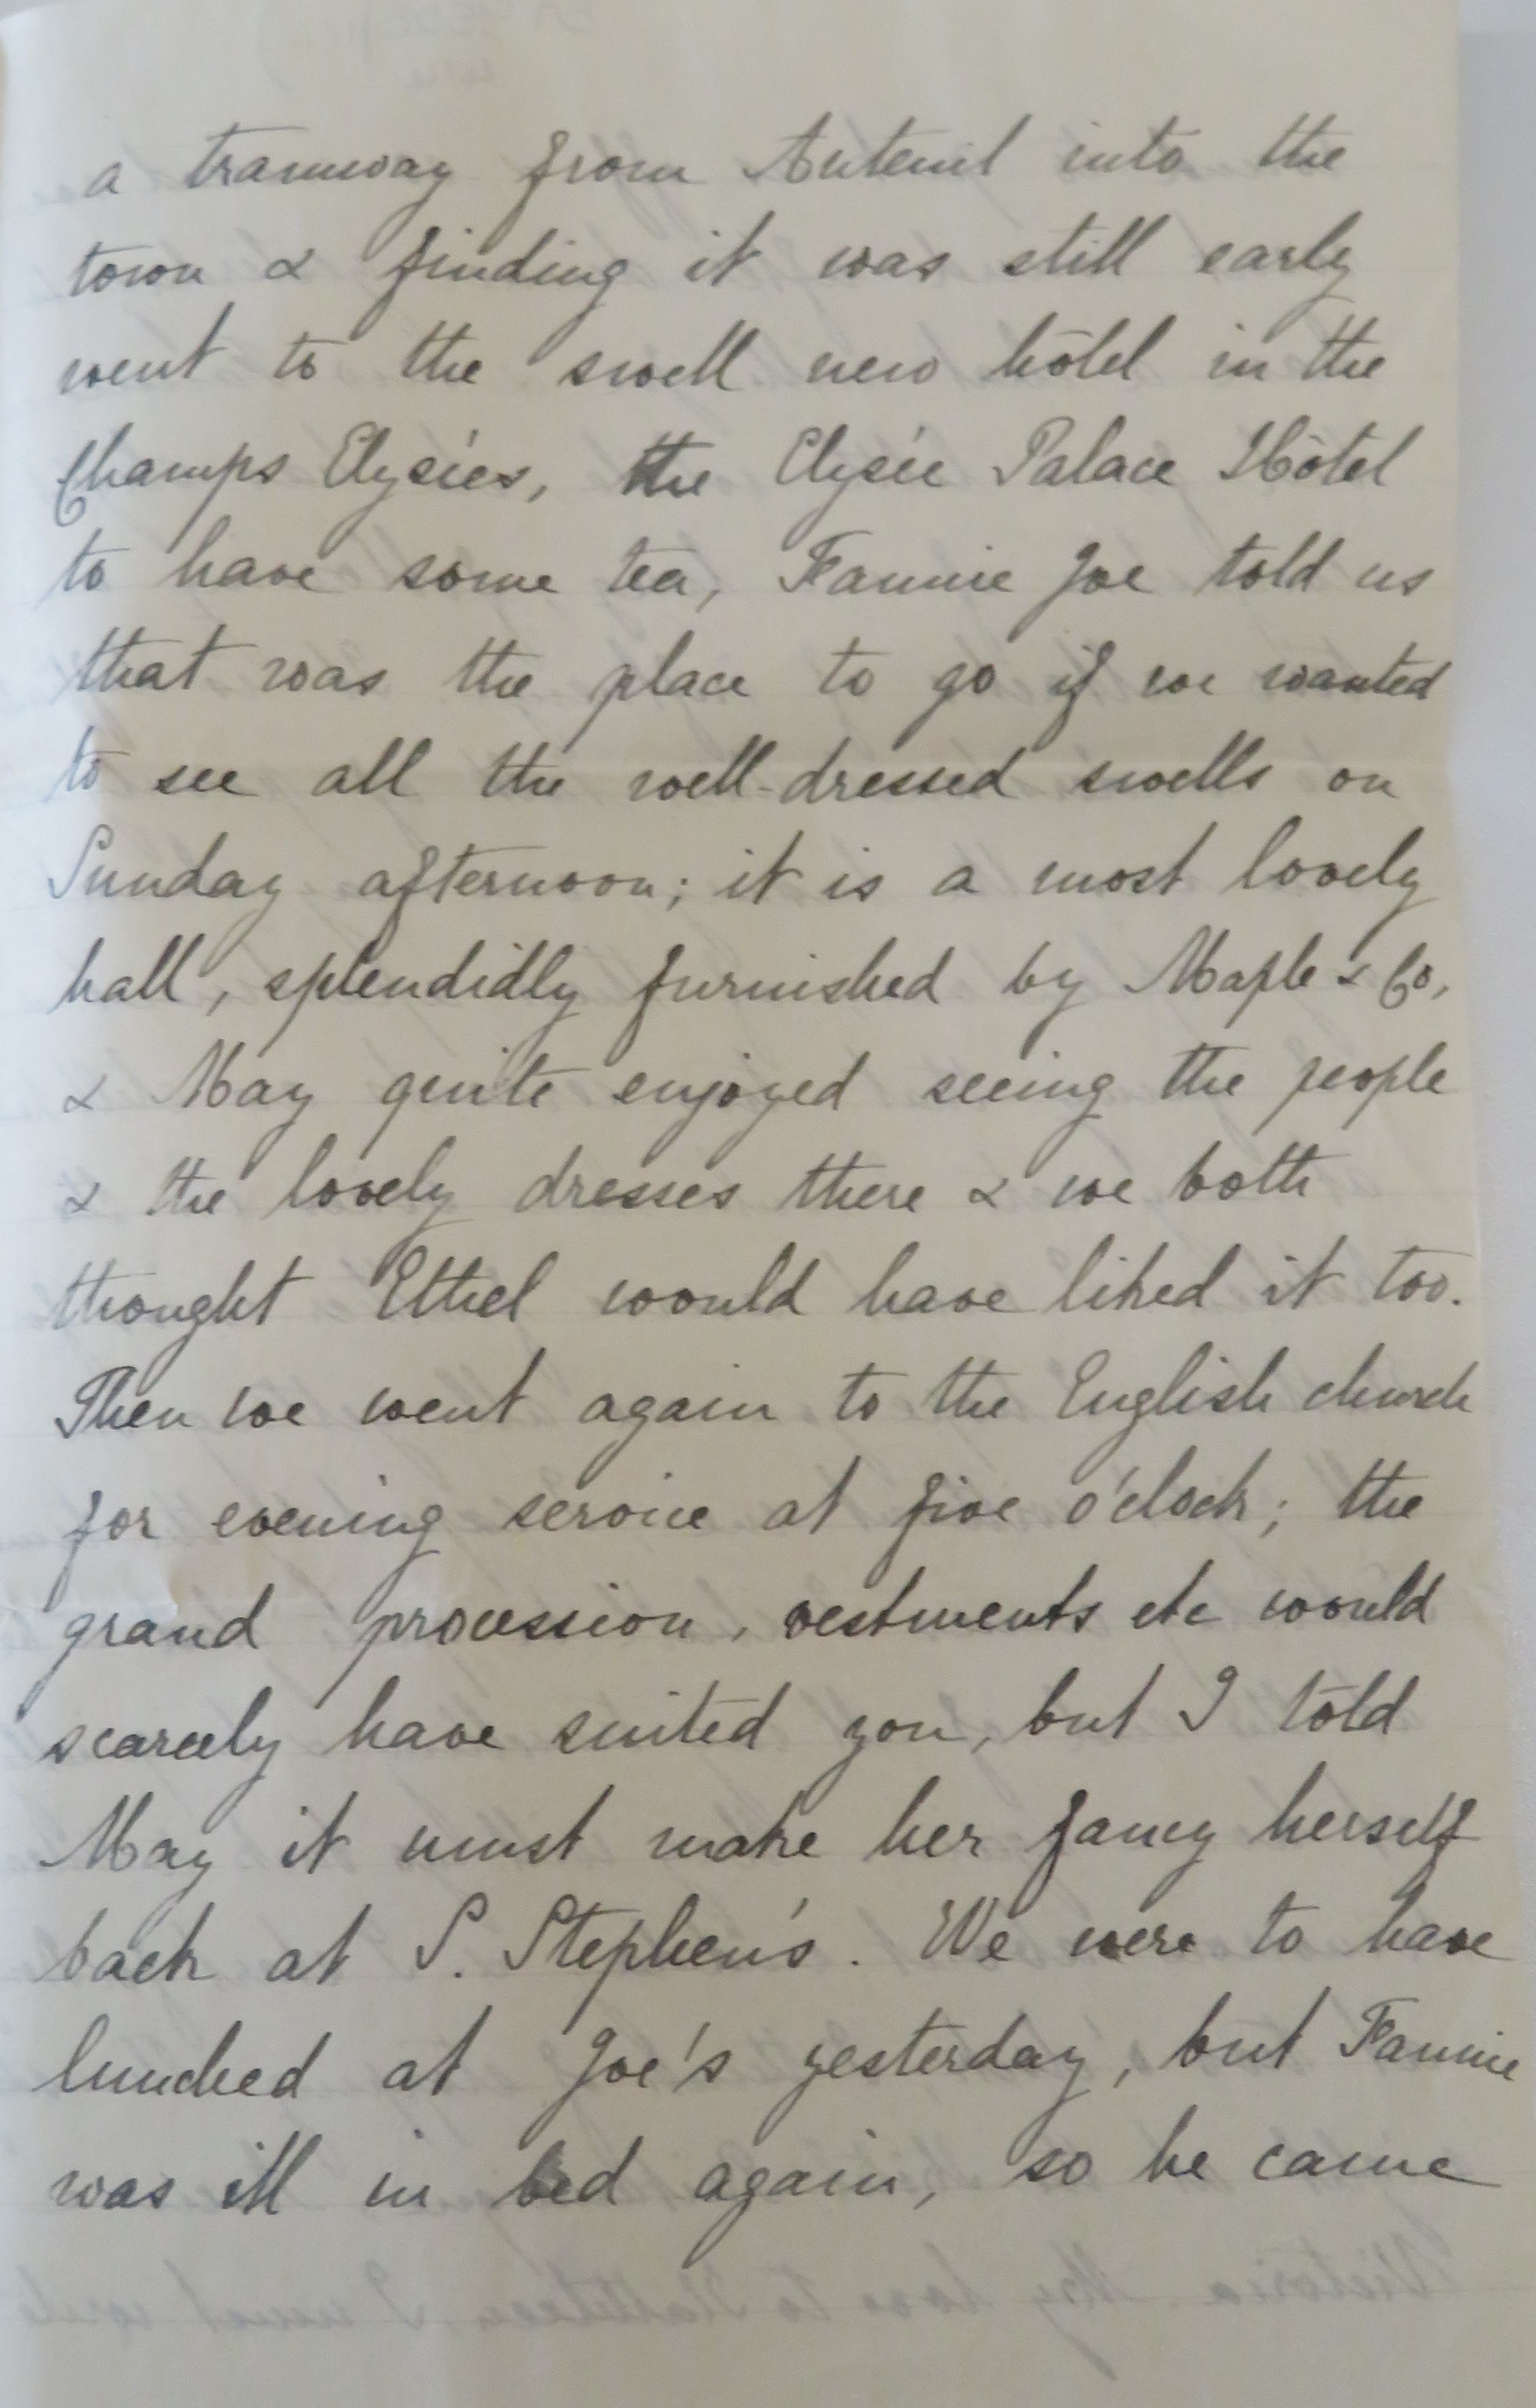 a tramway from Auteuil into the
town & finding it was still early
went to the swell new hôtel in the
Champs Elysées, the Elysée Palace Hôtel
to have some tea, Fannie Joe told us
that was the place to go if we wanted
to see all the well-dressed swells on
Sunday afternoon; it is a most lovely
hall, splendidly furnished by Maple & Co,
& May quite enjoyed seeing the people
& the lovely dresses there & we both
thought Ethel would have liked it too.
Then we went again to the English church
for evening service at five o'clock; the
grand procession, vestments etc would
scarcely have suited you, but I told
May it must make her fancy herself
back at S. Stephen's. We were to have
lunched at Joe's yesterday, but Fannie
was ill in bed again, so he came